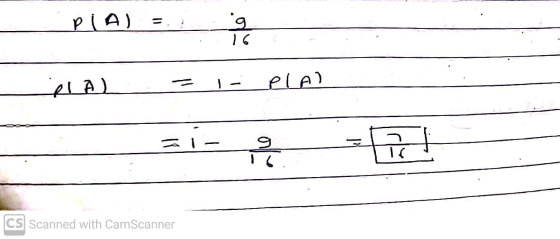 P(A) = 9/16
P(A) = 1 - P(A)
= 1 - 9/16 = 7/16
CS Scanned with CamScanner